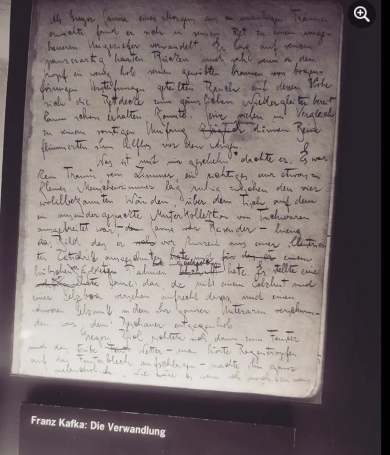 Als Gregor Samsa eines Morgens aus unruhigen Träumen
erwachte fand er sich in seinem Bett zu einem unge-
heueren Ungeziefer verwandelt. Er lag auf seinem
panzerartig harten Rücken und sah, wenn er den
Kopf ein wenig hob seinen gewölbten braunen von bogen-
förmigen Versteifungen geteilten Bauch auf dessen Höhe
sich die Bettdecke zum gänzlichen Niedergleiten bereit
kaum erhalten konnte. Seine vielen im Vergleich
zu seinem sonstigen Umfang dünnen Beine
flimmerten ihm vor den Augen.
Was ist mit mir geschehn? dachte er. Es war
kein Traum, sein Zimmer, ein richtiges nur etwas zu
kleines Menschenzimmer lag ruhig zwischen den vier
wohlbekannten Wänden, über dem Tisch auf dem
eine auseinandergepackte Musterkollektion von Tuchwaren
ausgebreitet war - Samsa war Reisender - hieng
das Bild, das er vor kurzem aus einer illustrier-
ten Zeitschrift ausgeschnitten und in einem
hübschen Rahmen hatte. Es stellte eine
Dame dar, die mit einem Pelzhut und
einer Pelzboa versehen aufrecht dasass und einen
schweren Pelzmuff in dem ihr ganzer Unterarm verschwun-
den war, dem Beschauer entgegenhob.
Gregors Blick richtete sich dann zum Fenster
und das trübe Wetter - man hörte Regentropfen
auf das Fensterblech aufschlagen - machte ihn ganz
melancholisch.
Franz Kafka: Die Verwandlung